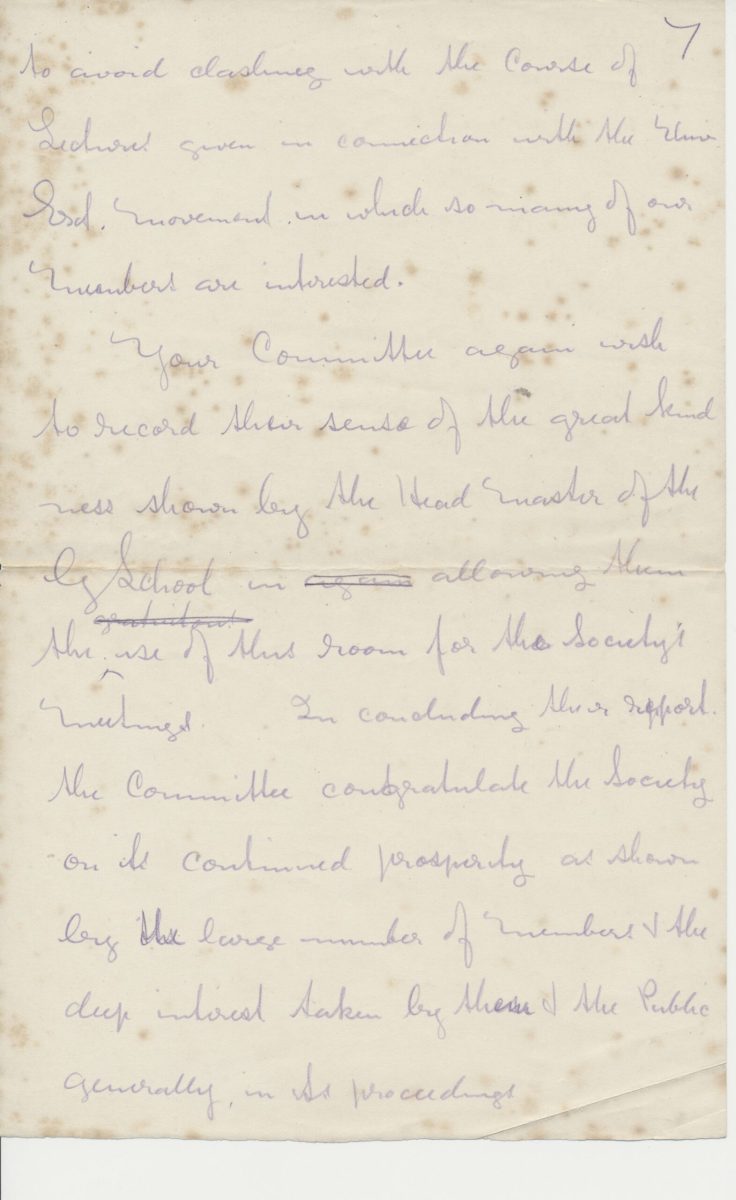 7
to avoid clashing with the Course of
Lectures given in connection with the Univ
Ext. Movement in which so many of our
Members are interested.
Your Committee again wish
to record their sense of the great kind
ness shown by the Head Master of the
School in again allowing them
gratuitous
the use of this room for the Society's
Meetings. In concluding their report.
the Committee congratulate the Society
on its continued prosperity as shown
by the large number of Members & the
deep interest taken by them & the Public
generally, in its proceedings